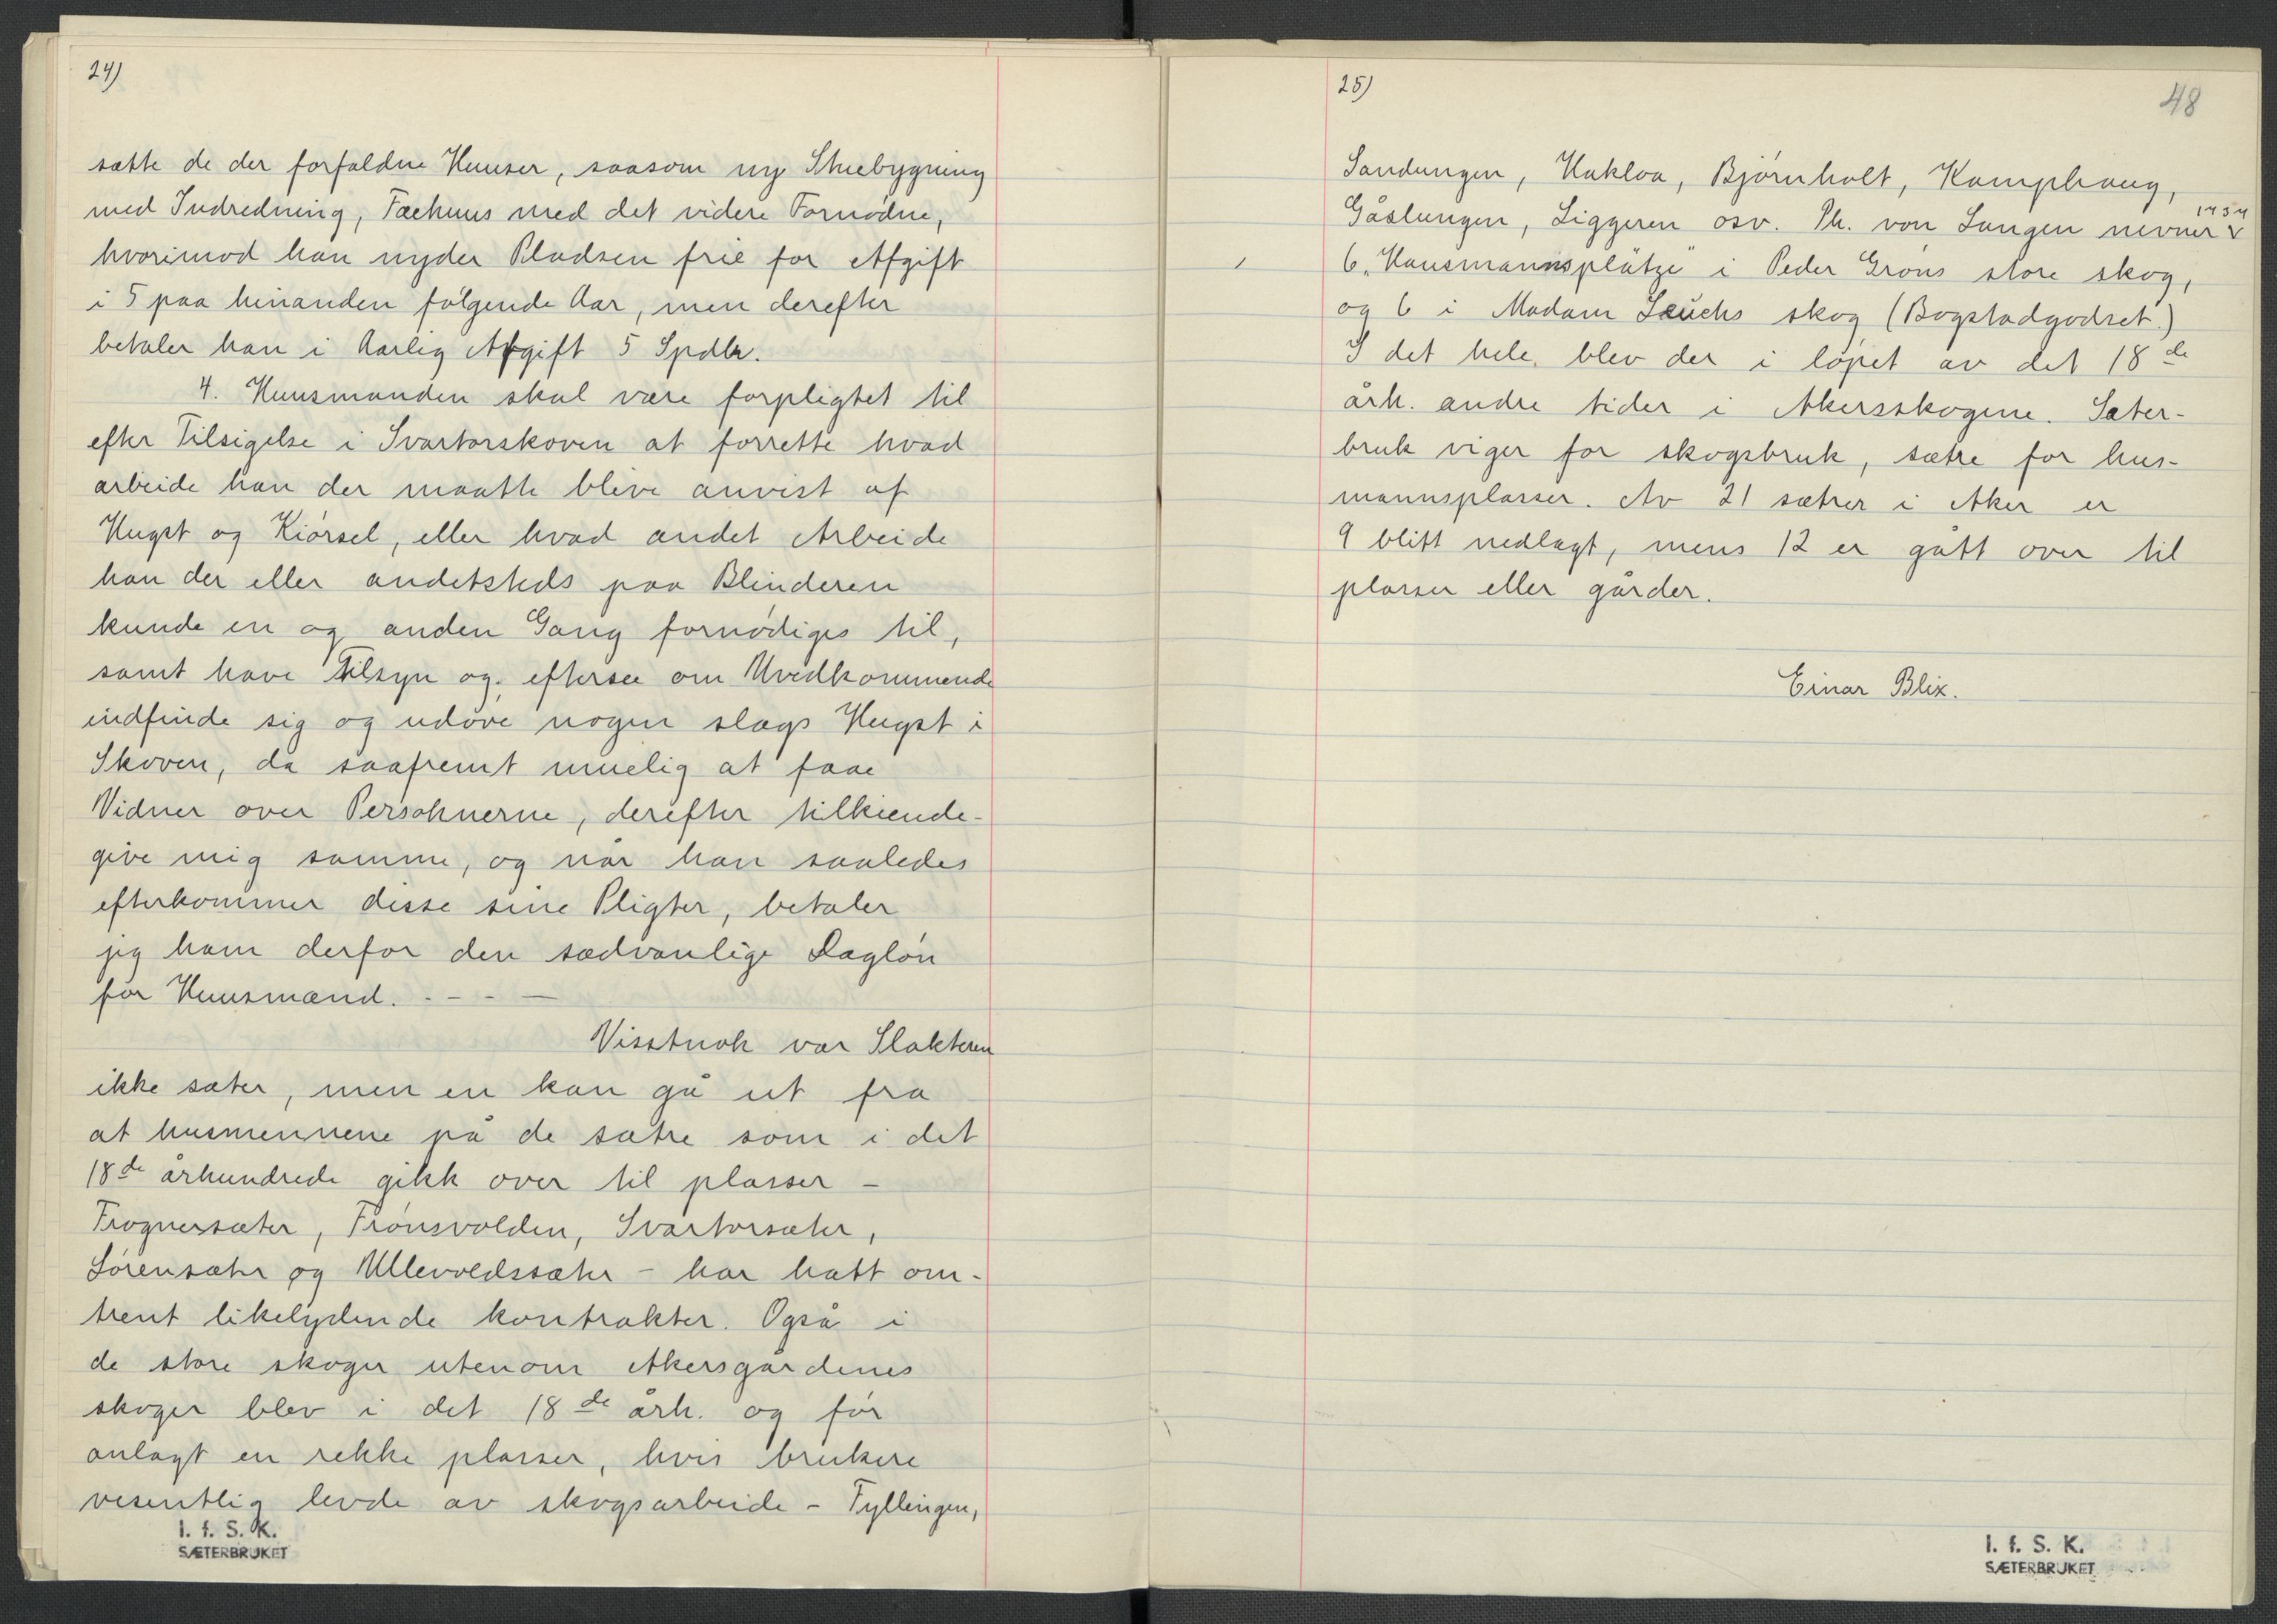 24)
sætte de der forfaldne Huuser, saasom ny Stuebygning
med Indredning, Fæehuus med det videre Fornødne,
hvorimod han nyder Pladsen frie for Afgift
i 5 paa hinanden følgende Aar, men derefter
betaler han i Aarlig Afgift 5 Spdlr.
4. Huusmanden skal være forpligtet til
efter Tilsigelse i Svartorskoven at forrette hvad
arbeide han der maatte blive anvist af
Hugst og Kiørsel, eller hvad andet Arbeide
han der eller andetsteds paa Blinderen
kunde en og anden Gang fornødiges til,
samt have Tilsyn og eftersee om Uvedkommende
indfinde sig og udøve nogen slags Hugst i
Skoven, da saafremt muelig at faae
Vidner over Persohnerne, derefter tilkiende-
give mig samme, og når han saaledes
efterkommer disse sine Pligter, betaler
jeg ham derfor den sædvanlige Dagløn
for Huusmænd. - - - -
Visstnok var Slakteren
ikke sæter, men en kan gå ut fra
at husmennene på de sætre som i det
18de århundrede gikk over til plasser -
Frognersæter, Frønsvolden, Svartorsæter,
Sørensæter og Ullevoldssæter - har hatt om-
trent likelydende kontrakter. Også i
de store skoger utenom Akersgårdenes
skoger blev i det 18de årh. og før
anlagt en rekke plasser, hvis brukere
vesentlig levde av skogsarbeide - Fyllingen,
I. f. S. K.
SÆTERBRUKET
25)
48
Sandungen, Hakloa, Bjørnholt, Kamphaug,
Gåslungen, Liggeren osv. Ph. von Langen nevner 1737
6 "Hausmannsplätze" i Peder Grøns store skog,
og 6 i Madam Leuchs skog (Bogstadgodset.)
I det hele blev der i løpet av det 18de
årh. andre tider i Akersskogene. Sæter-
bruk viger for skogsbruk, sætre for hus-
mannsplasser. Av 21 sætrer i Aker er
9 blitt nedlagt, mens 12 er gått over til
plasser eller gårder.
Einar Blix.
I. f. S. K.
SÆTERBRUKET